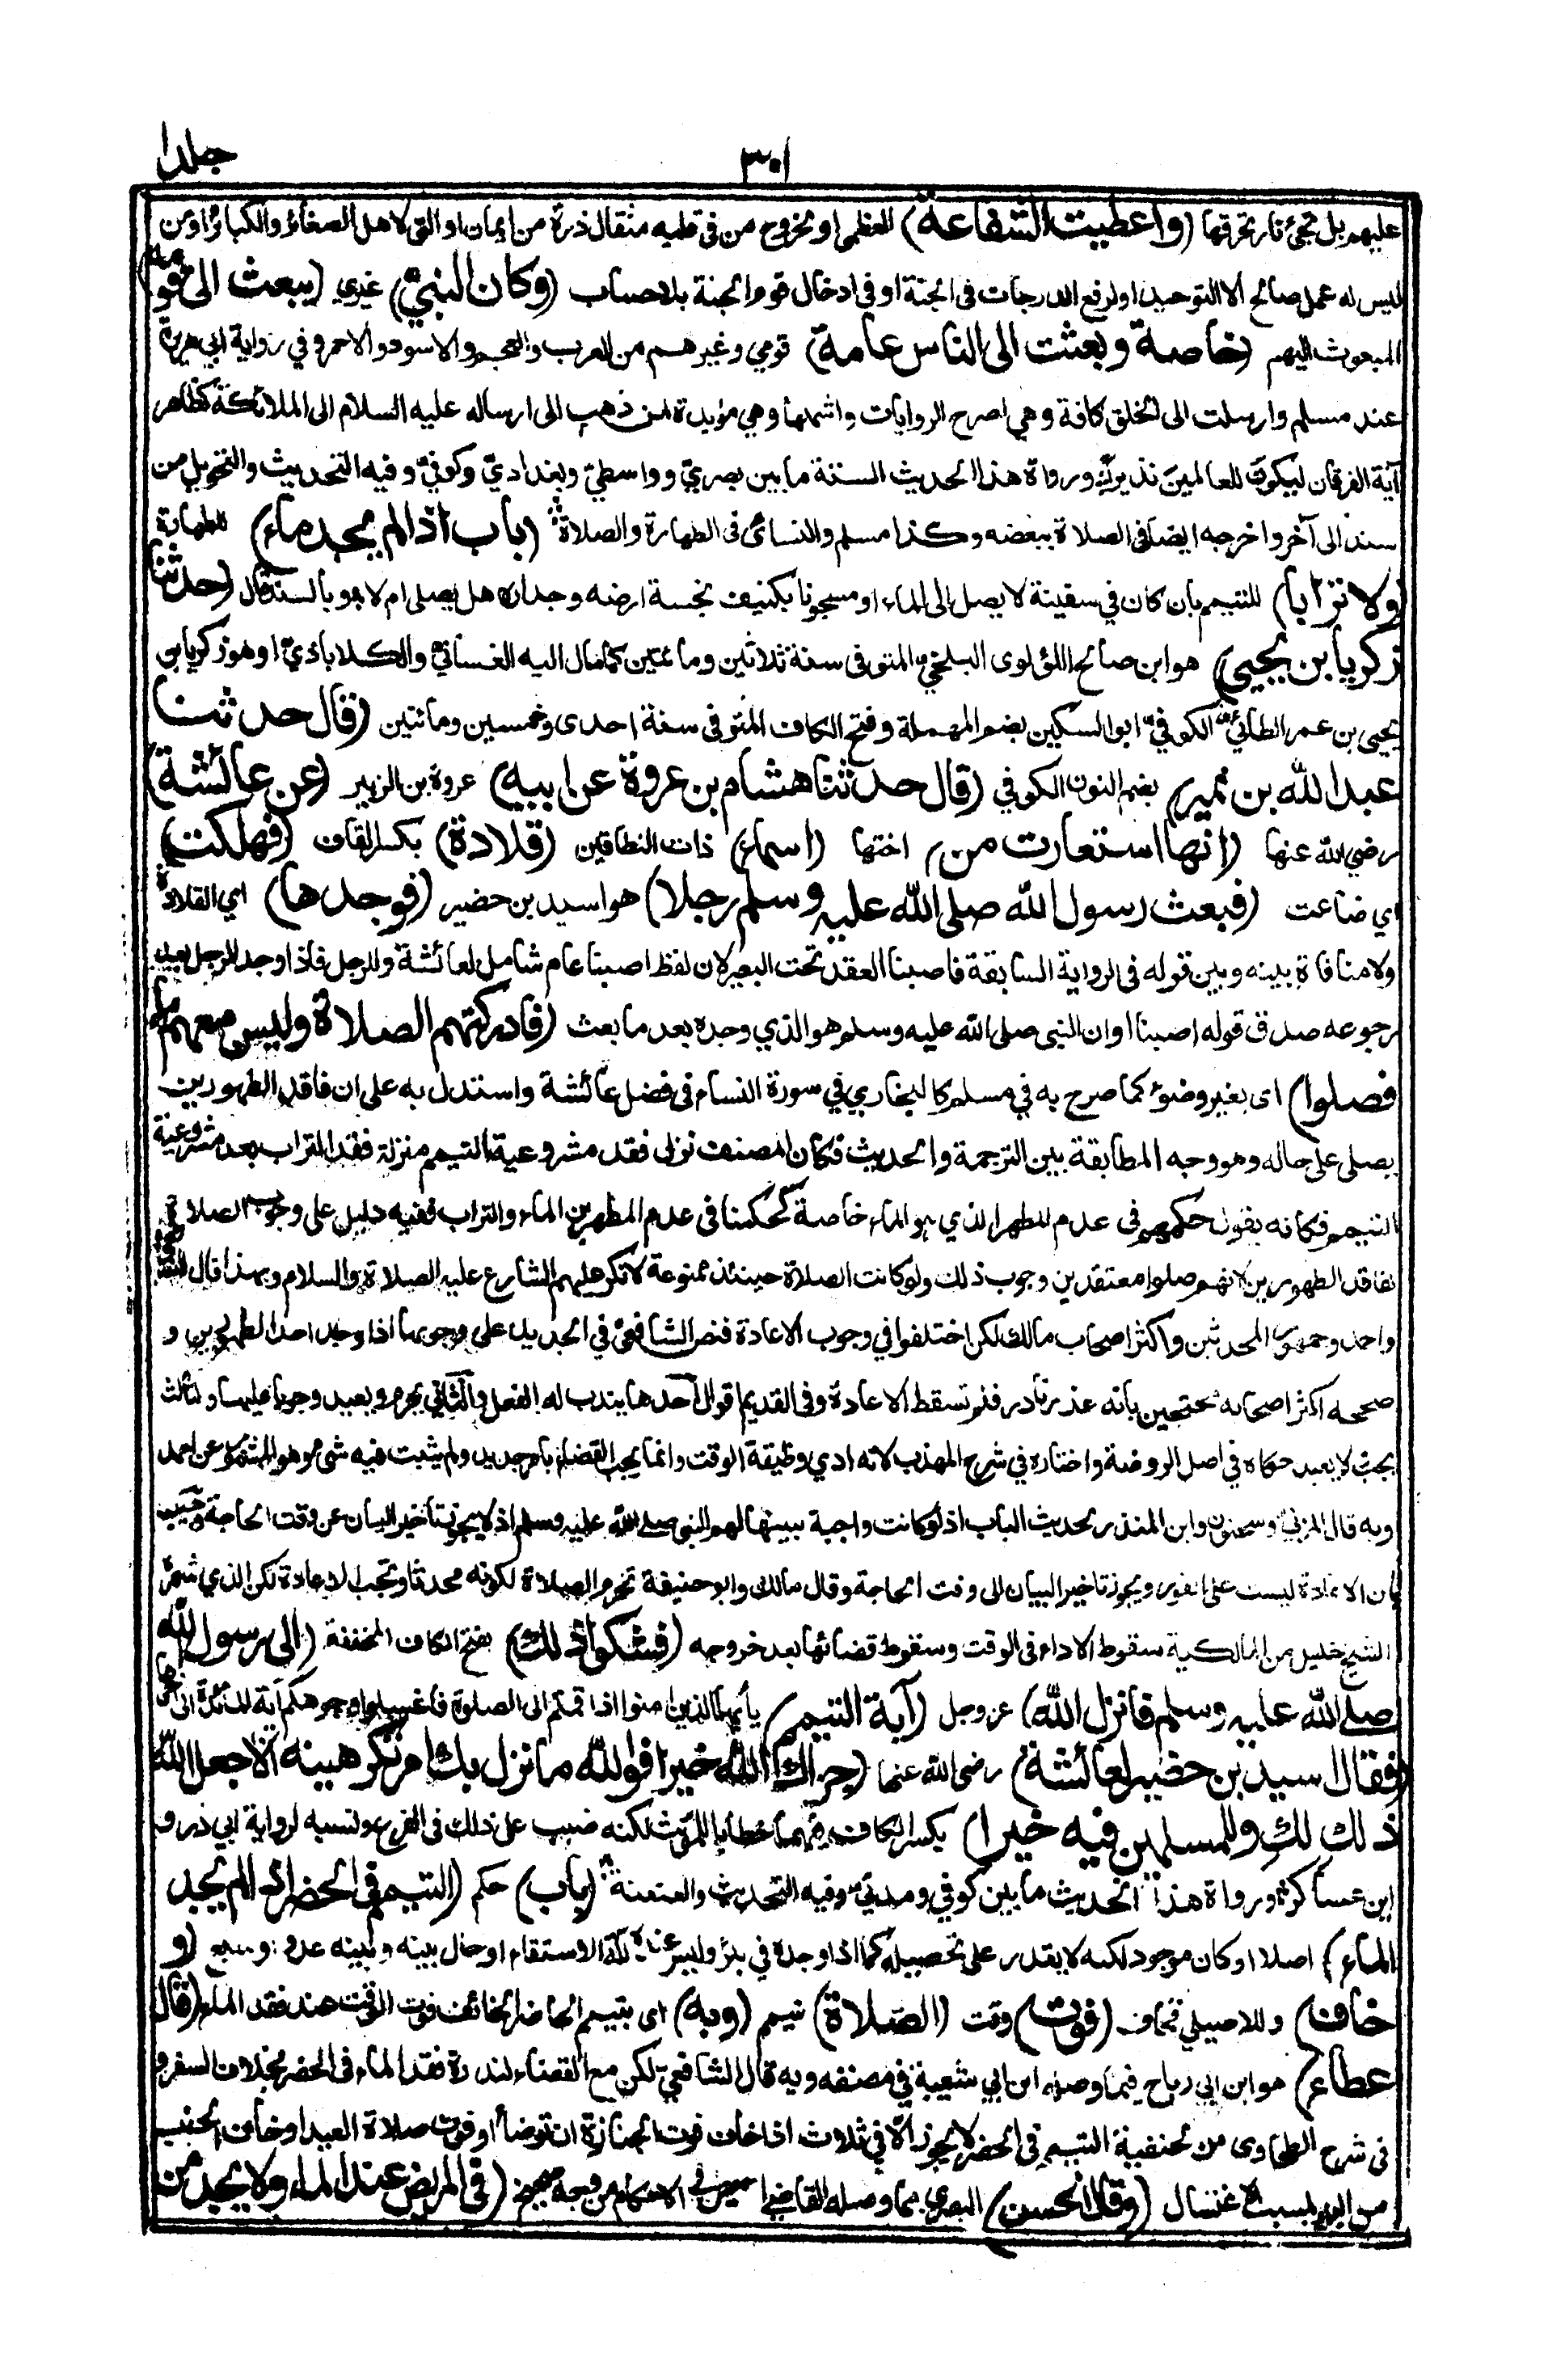 جلد ا
٣٠١
عليهم بل تجئ نار تحرقها (واعطيت الشفاعة) العظمى او لخروج من في قلبه مثقال ذرة من ايمان او التى لاهل الصغائر والكبائر او من
ليس له عمل صالح الا التوحيد او لرفع الدرجات في الجنة او في ادخال قوم الجنة بلا حساب (وكان النبيّ) غيري (يبعث الى قومه)
المبعوث اليهم (خاصة وبعثت الى الناس عامة) قومي وغيرهم من العرب والعجم والاسود والاحمر وفي رواية ابي هريرة
عند مسلم وارسلت الى الخلق كافة وهي اصرح الروايات واشملها وهي مؤيدة لمن ذهب الى ارساله عليه السلام الى الملائكة كظاهر
آية الفرقان ليكون للعالمين نذيرا ورواة هذا الحديث الستة ما بين بصريّ وواسطيّ وبغداديّ وكوفيّ وفيه التحديث والتحويل من
سند الى آخر واخرجه ايضا في الصلاة ببعضه وكذا مسلم والنسائى فى الطهارة والصلاة (باب اذا لم يجد ماء) للطهارة
(ولا ترابا) للتيمم بان كان في سفينة لا يصل الى الماء او مسجونا بكنيف نجسة ارضه وجداره هل يصلى ام لا وبالسند قال (حدثنا
زكريا بن يحيى) هو ابن صالح اللؤلوى البلخيّ المتوفى سنة ثلاثين ومائتين كما مال اليه الغسانيّ والكلاباذيّ او هو زكريا بن
يحيى بن عمر الطائيّ الكوفيّ ابو السكين بضم المهملة وفتح الكاف المتوفى سنة احدى وخمسين ومائتين (قال حدثنا
عبد الله بن نمير) بضم النون الكوفي (قال حدثنا هشام بن عروة عن ابيه) عروة بن الزبير (عن عائشة)
رضي الله عنها (انها استعارت من) اختها (اسماء) ذات النطاقين (قلادة) بكسر القاف (فهلكت)
اي ضاعت (فبعث رسول الله صلى الله عليه وسلم رجلا) هو اسيد بن حضير (فوجدها) اي القلادة
ولا منافاة بينه وبين قوله فى الرواية السابقة فاصبنا العقد تحت البعير لان لفظ اصبنا عام شامل لعائشة وللرجل فاذا وجد الرجل بعد
رجوعه صدق قوله اصبنا او ان النبى صلى الله عليه وسلم هو الذي وجده بعد ما بعث (فادركتهم الصلاة وليس معهم ماء
فصلوا) اى بغير وضوء كما صرح به في مسلم كالبخاري في سورة النساء فى فضل عائشة واستدل به على ان فاقد الطهورين
يصلى على حاله وهو وجه المطابقة بين الترجمة والحديث فكان المصنف نزل فقد مشروعية التيمم منزلة فقد التراب بعد مشروعية
التيمم فكانه يقول حكمهم فى عدم المطهر الذي هو الماء خاصة كحكمنا فى عدم المطهرين الماء والتراب ففيه دليل على وجوب الصلاة
لفاقد الطهورين لانهم صلوا معتقدين وجوب ذلك ولو كانت الصلاة حينئذ ممنوعة لانكر عليهم الشارع عليه الصلاة والسلام وبهذا قال الشافعى
واحمد وجمهور المحدثين واكثر اصحاب مالك لكن اختلفوا في وجوب الاعادة فنص الشافعيّ في الجديد على وجوبها اذا وجد احد الطهورين و
صححه اكثر اصحابه محتجين بانه عذر نادر فلم تسقط الاعادة وفى القديم اقوال احدها يندب له الفعل والثاني يحرم ويعيد وجوبا عليهما والثالث
يجب ولا يعيد حكاه في اصل الروضة واختاره في شرح المهذب لانه ادى وظيفة الوقت وانما يجب القضاء بامر جديد ولم يثبت فيه شئ وهو المشهور عن احمد
وبه قال المزنيّ وسحنون وابن المنذر لحديث الباب اذ لو كانت واجبة لبينها لهم النبى صلى الله عليه وسلم اذ لا يجوز تاخير البيان عن وقت الحاجة واجيب
بان الاعادة ليست على الفور ويجوز تاخير البيان الى وقت الحاجة وقال مالك وابو حنيفة تحرم الصلاة لكونه محدثا وتجب الاعادة لكن الذي شهره
الشيخ خليل من المالكية سقوط الاداء فى الوقت وسقوط قضائها بعد خروجه (فشكوا ذلك) بفتح الكاف المخففة (الى رسول الله
صلى الله عليه وسلم فانزل الله) عز وجل (آية التيمم) يا ايها الذين امنوا اذا قمتم الى الصلوة فاغسلوا وجوهكم آية المائدة الى آخرها
(فقال اسيد بن حضير لعائشة) رضى الله عنها (جزاك الله خيرا فوالله ما نزل بك امر تكرهينه الا جعل الله
ذلك لك وللمسلمين فيه خيرا) بكسر الكاف فيهما خطابا للمؤنث لكنه ضبب على ذلك فى الفرع ونسبه لرواية ابي ذر و
ابن عساكر ورواة هذا الحديث ما بين كوفي ومدنيّ وفيه التحديث والعنعنة (باب) حكم (التيمم فى الحضر اذا لم يجد
الماء) اصلا او كان موجود لكنه لا يقدر على تحصيله كما اذا وجده في بئر وليس عنده آلة الاستقاء او حال بينه وبينه عدو او سبع (و
خاف) وللاصيلي فخاف (فوت) وقت (الصّلاة) تيمم (وبه) اى بتيمم الحاضر الخائف فوت الوقت عند فقد الماء (قال
عطاء) هو ابن ابي رباح فيما وصله ابن ابي شيبة في مصنفه وبه قال الشافعيّ لكن مع القضاء لندرة فقد الماء فى الحضر بخلاف السفر و
فى شرح الطحاوى من الحنفية التيمم فى الحضر لا يجوز الا في ثلاث اذا خاف فوت الجنازة ان توضأ او فوت صلاة العيد او خاف الجنب
من البرد بسبب الاغتسال (وقال الحسن) البصري مما وصله القاضي اسمعيل في الاحكام من وجه صحيح (فى المريض عنده الماء ولا يجد من